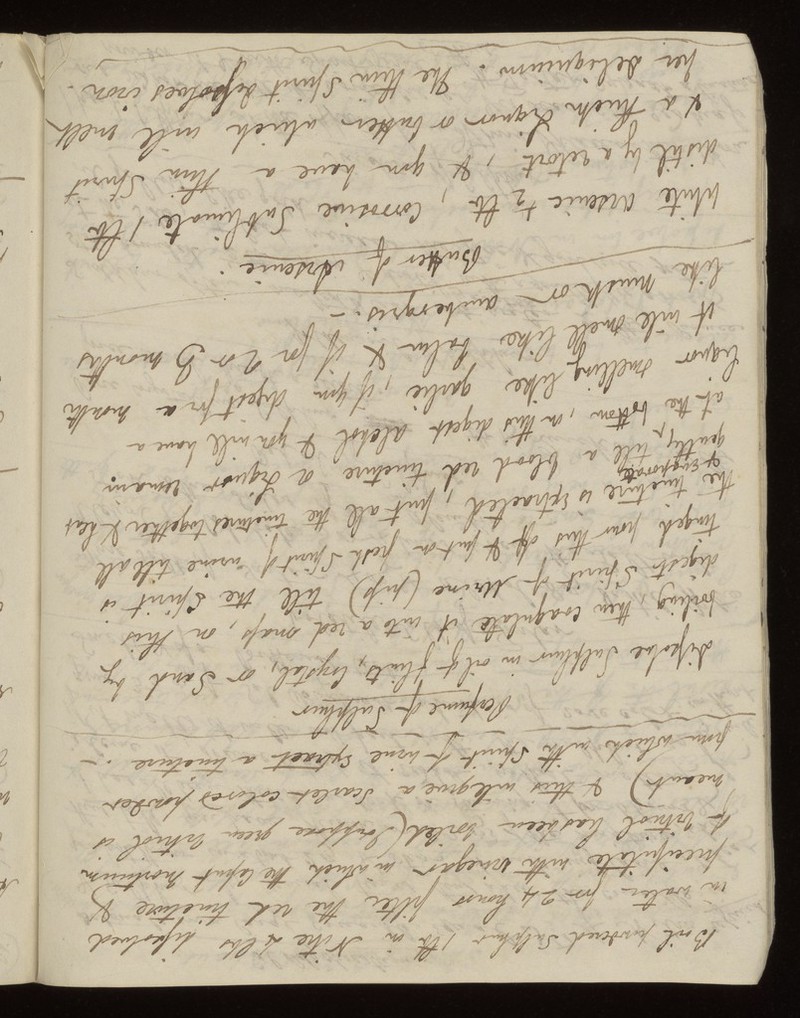 Boil powdered Sulphur 1 lb in Nitre 2 lbs dissolved
in water for 24 hours filter the red tincture &
precipitate with vinegar in which the caput mortuum
of Vitriol has been boiled (suppose green vitriol is
meant) & this will give a scarlet colored powder
from which with Spirit of urine extract a tincture. –
Perfume of Sulphur
dissolve Sulphur in oil of flints, Crystal, or Sand by
boiling, then coagulate it into a red mass, on this
digest Spirit of Urine (sup) till the Spirit is
tinged, pour this off & put on fresh Spirit of urine till all
the tincture is extracted, put all the tinctures together & let
& evaporate
gently, till a blood red tincture a Liquor remain
at the bottom, on this digest alcohol & you will have a
Liquor smelling like garlic, if you digest for a month
it will smell like balm & if for 2 or 3 months
like musk or ambergris. –
Butter of Arsenic.
White arsenic ½ lb, Corrosive Sublimate 1 lb
distil by a retort, & you have a thin Spirit
& a thick Liquor or butter which will melt
per deliquium. The thin Spirit dissolves iron.